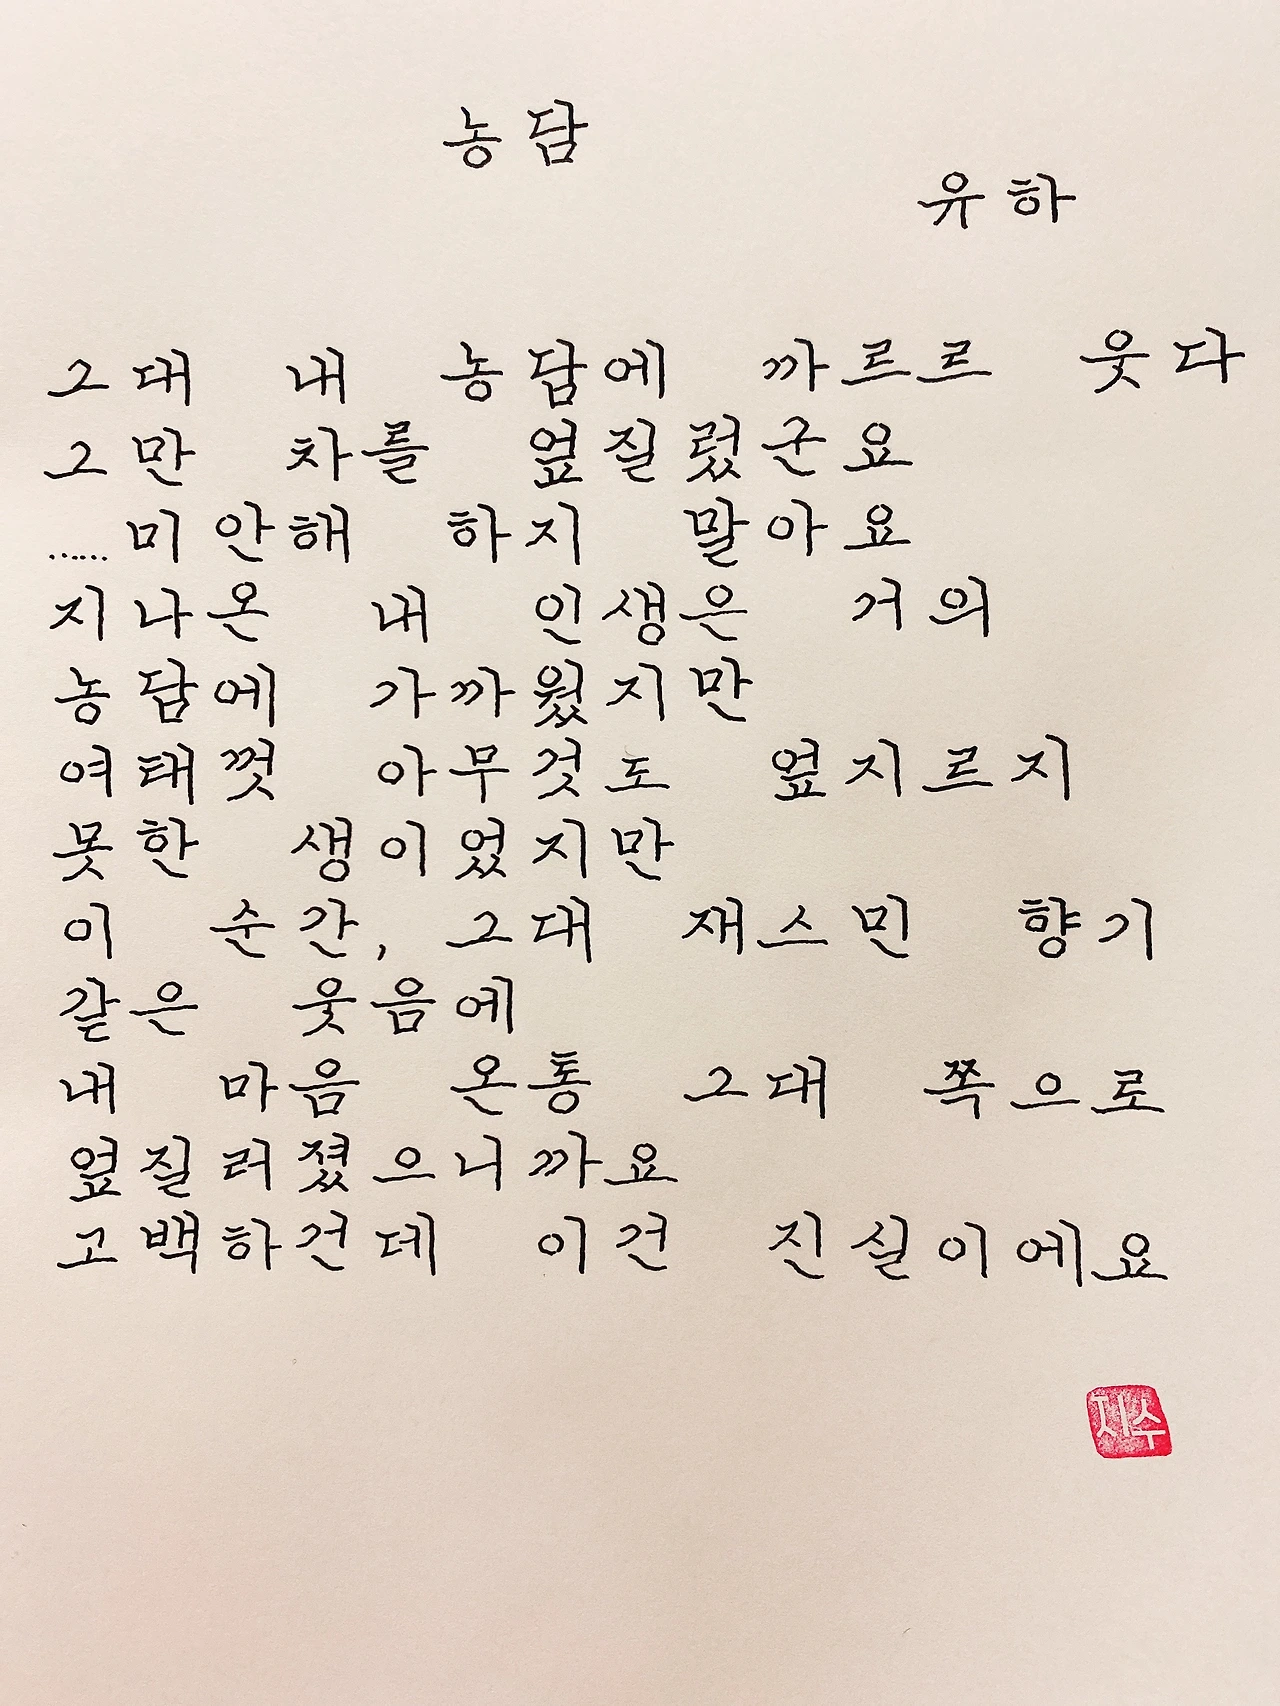 농담
유하
그대 내 농담에 까르르 웃다
그만 차를 엎질렀군요
......미안해 하지 말아요
지나온 내 인생은 거의
농담에 가까웠지만
여태껏 아무것도 엎지르지
못한 생이었지만
이 순간, 그대 재스민 향기
같은 웃음에
내 마음 온통 그대 쪽으로
엎질러졌으니까요
고백하건데 이건 진실이에요
지수